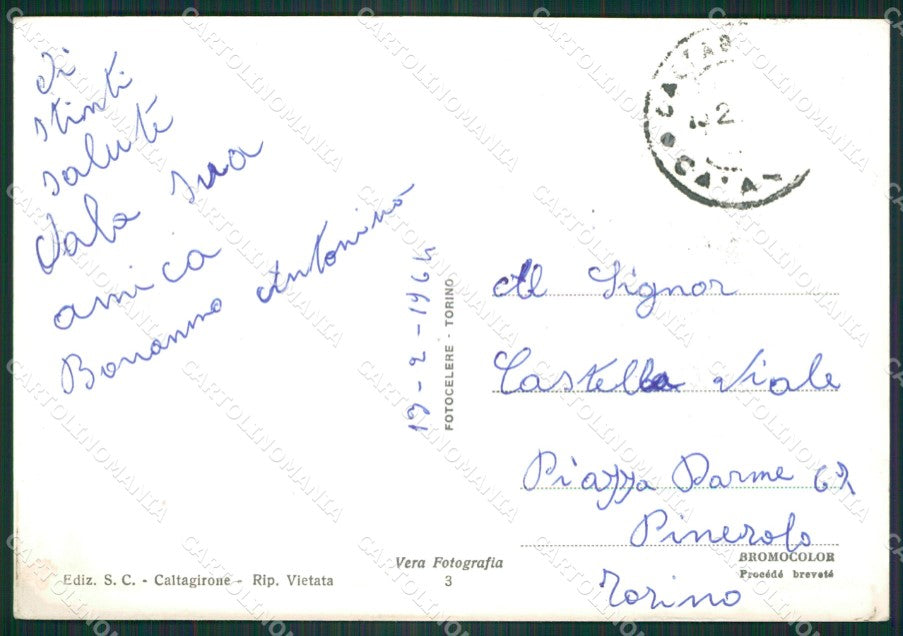 Di
stinti
salute
Dala sua
amica
Bonanno Antonino
19-2-1964
FOTOCELERE - TORINO
Al Signor
Castella Viale
Piazza Darme 62
Pinerolo
Torino
BROMOCOLOR
Procédé breveté
Vera Fotografia
3
Ediz. S. C. - Caltagirone - Rip. Vietata
CARTOLINOMANIA